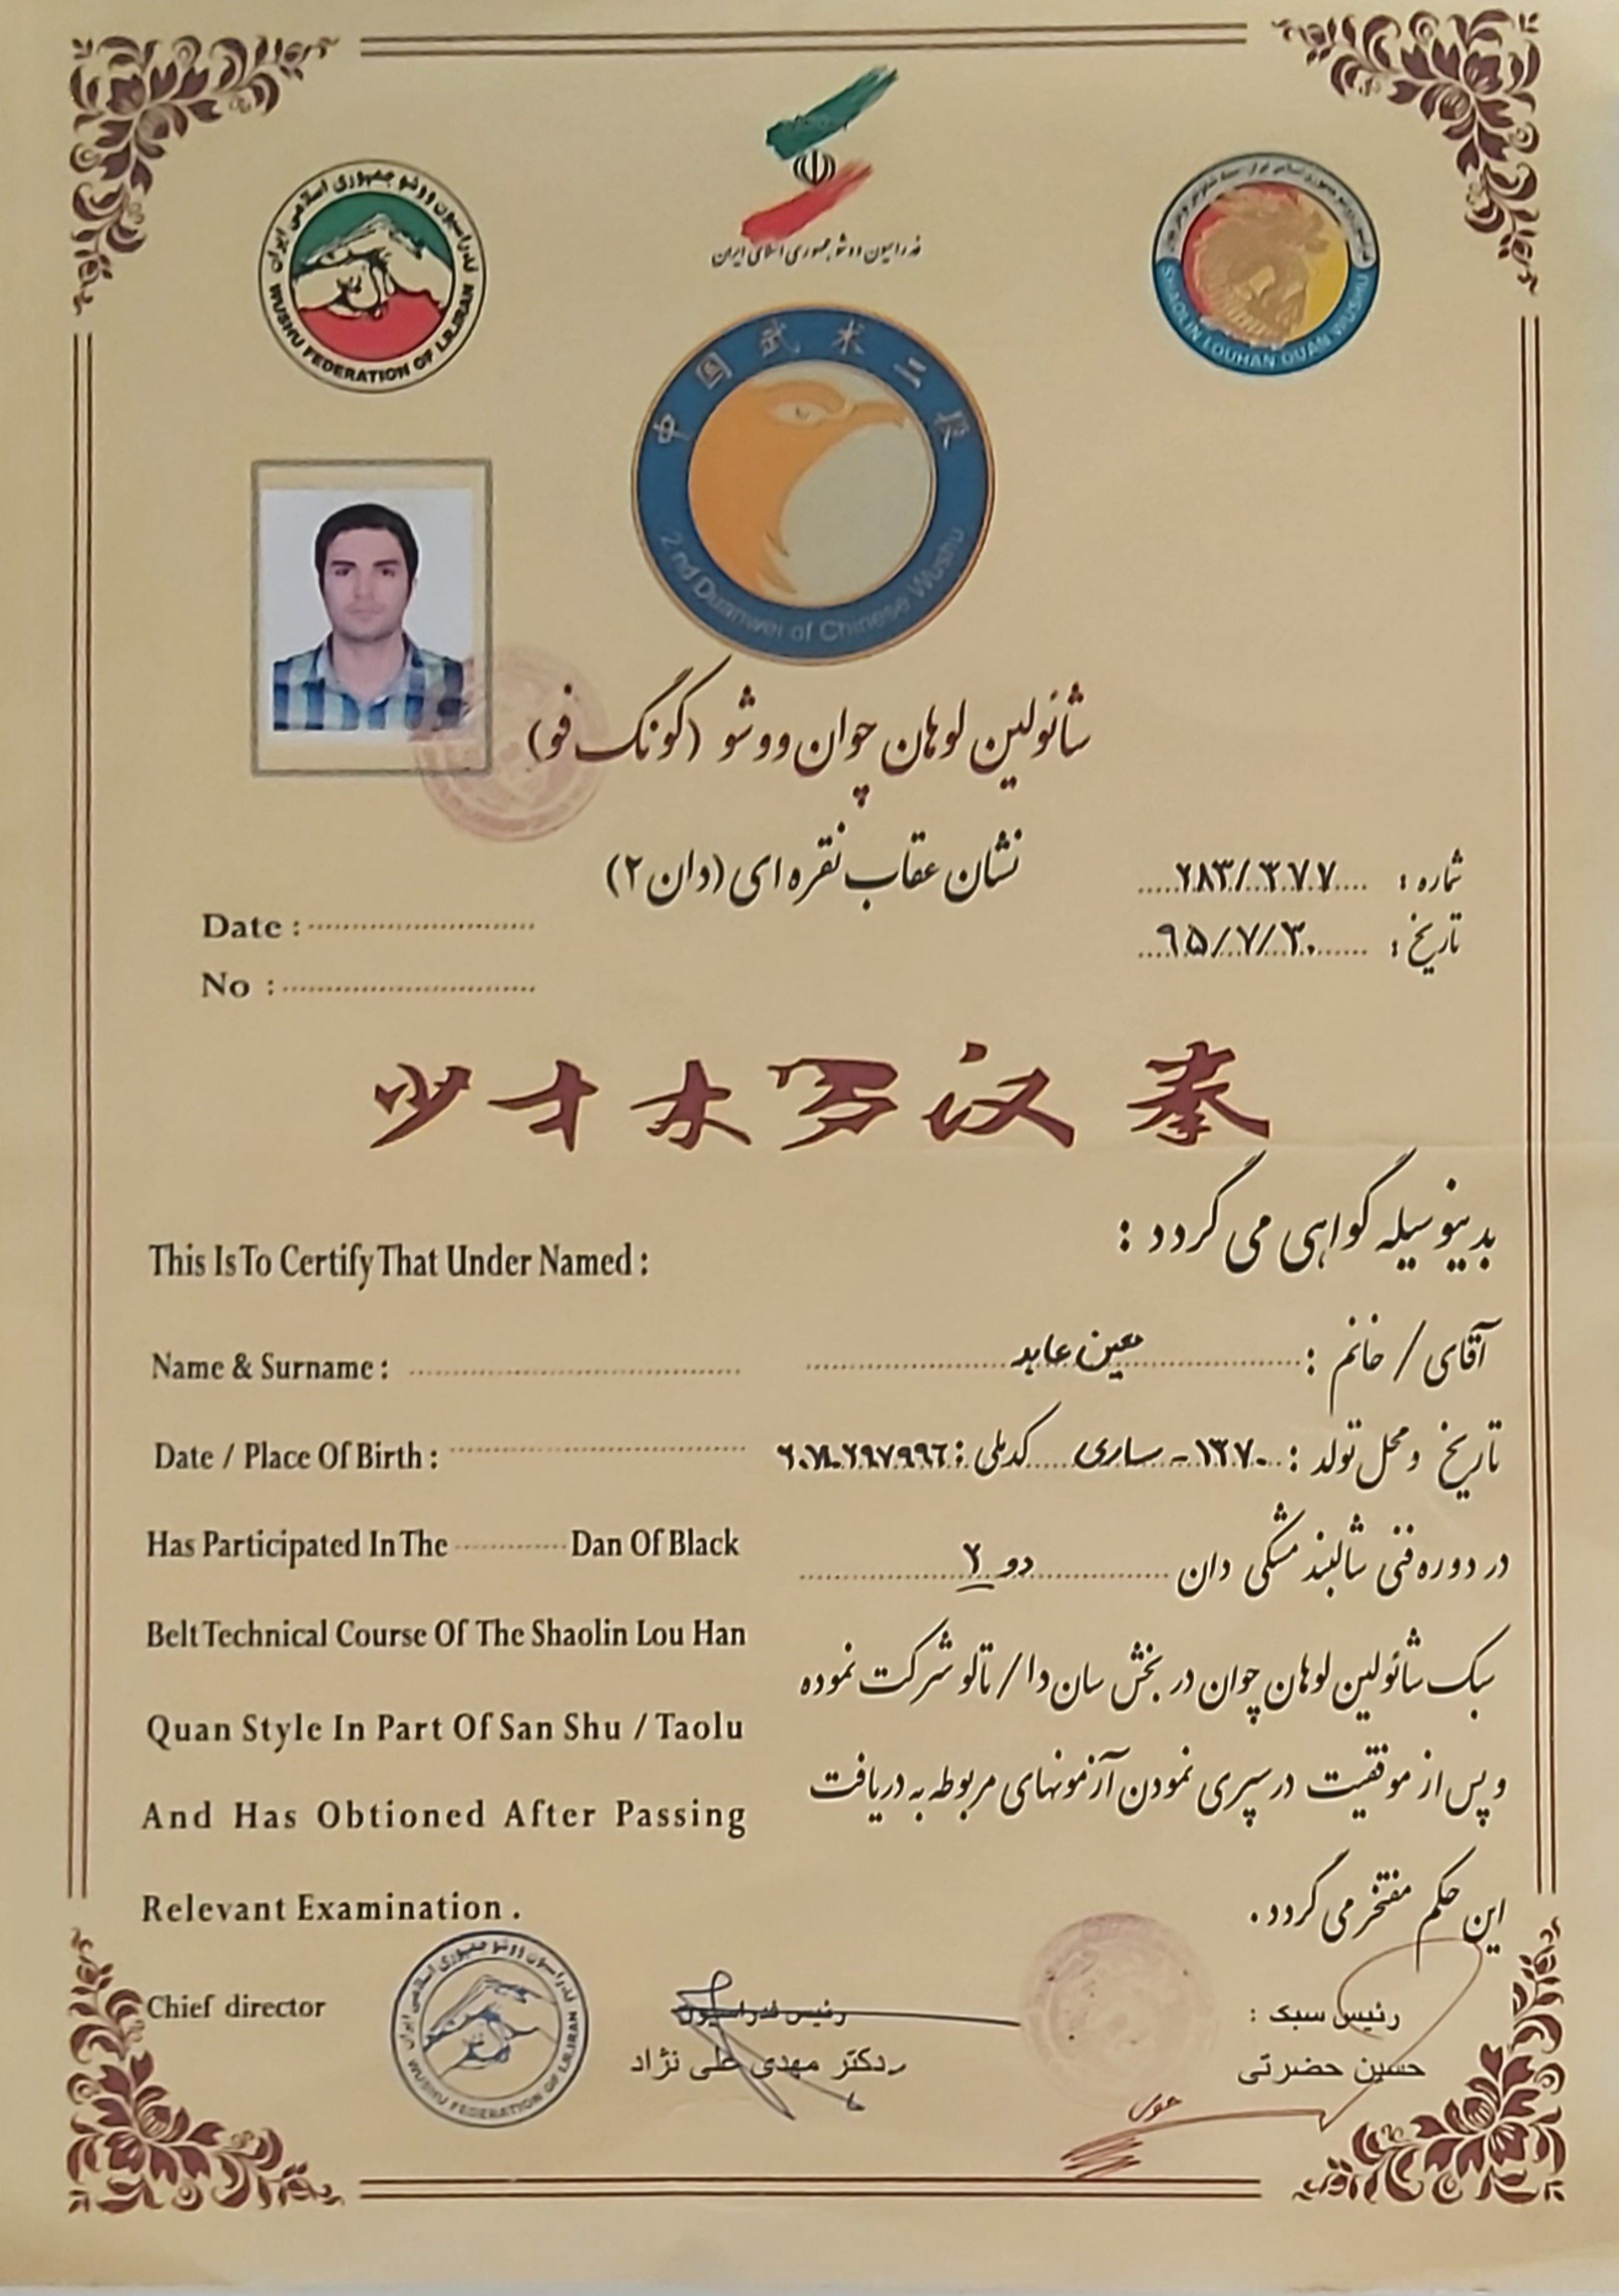 فدراسیون ووشو جمهوری اسلامی ایران
WUSHU FEDERATION OF I.R.IRAN
فدراسیون ووشو جمهوری اسلامی ایران
SHAOLIN LOUHAN QUAN WUSHU
中国武术二段
2 nd Duanwei of Chinese Wushu
شائولین لوهان چوان ووشو (گونگ فو)
نشان عقاب نقره ای (دان ۲)
شماره : ۲۸۳/۳۷۷
تاریخ : ۹۵/۷/۳۰
Date :
No :
少林罗汉拳
بدینوسیله گواهی می گردد :
This Is To Certify That Under Named :
آقای / خانم : معین عابد
Name & Surname :
تاریخ و محل تولد : ۱۳۷۰ - ساری کد ملی :
Date / Place Of Birth :
در دوره فنی شالبند مشکی دان دو ۲
Has Participated In The Dan Of Black
سبک شائولین لوهان چوان در بخش سان دا / تالو شرکت نموده
Belt Technical Course Of The Shaolin Lou Han
و پس از موفقیت در سپری نمودن آزمونهای مربوطه به دریافت
Quan Style In Part Of San Shu / Taolu
این حکم مفتخر می گردد .
And Has Obtioned After Passing
Relevant Examination .
Chief director
فدراسیون ووشو جمهوری اسلامی ایران
WUSHU FEDERATION OF I.R.IRAN
رئیس فدراسیون
دکتر مهدی علی نژاد
رئیس سبک :
حسین حضرتی